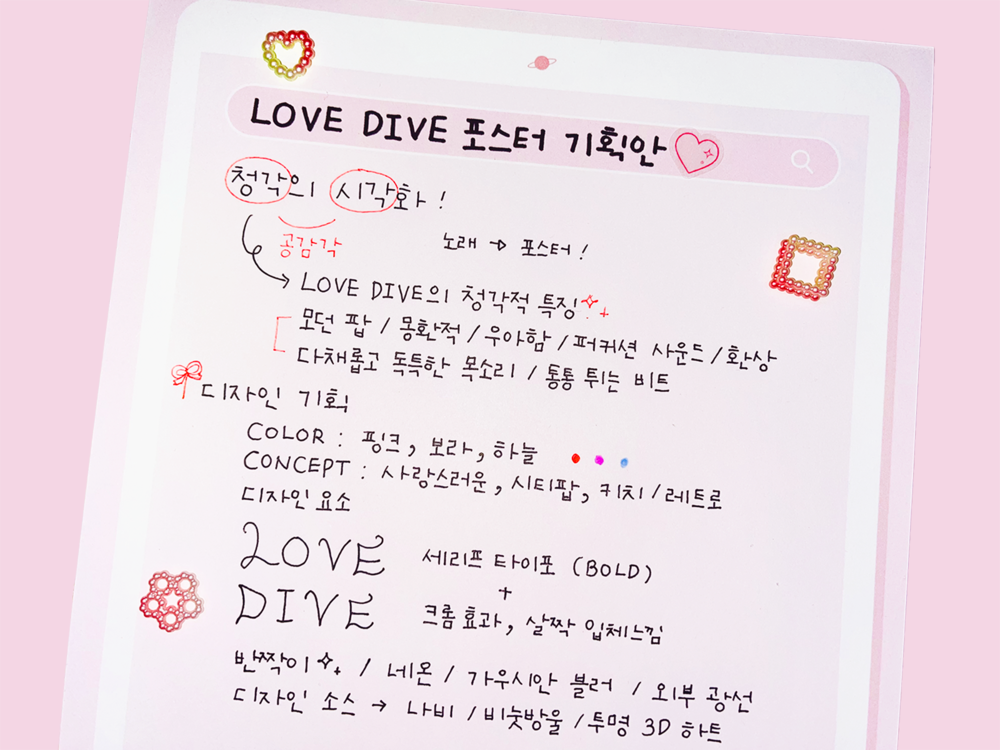 LOVE DIVE 포스터 기획안
청각의 시각화!
공감각
노래 → 포스터!
LOVE DIVE의 청각적 특징
모던 팝 / 몽환적 / 우아함 / 퍼커션 사운드 / 환상
다채롭고 독특한 목소리 / 통통 튀는 비트
디자인 기획
COLOR : 핑크, 보라, 하늘
CONCEPT : 사랑스러운, 시티팝, 키치 / 레트로
디자인 요소
LOVE 세리프 타이포 (BOLD)
+
DIVE 크롬 효과, 살짝 입체느낌
반짝이 / 네온 / 가우시안 블러 / 외부 광선
디자인 소스 → 나비 / 비눗방울 / 투명 3D 하트